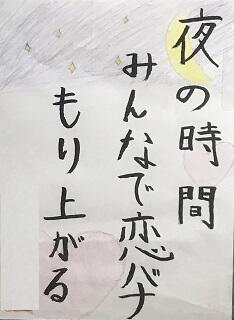 夜の時間
みんなで恋バナ
もり上がる